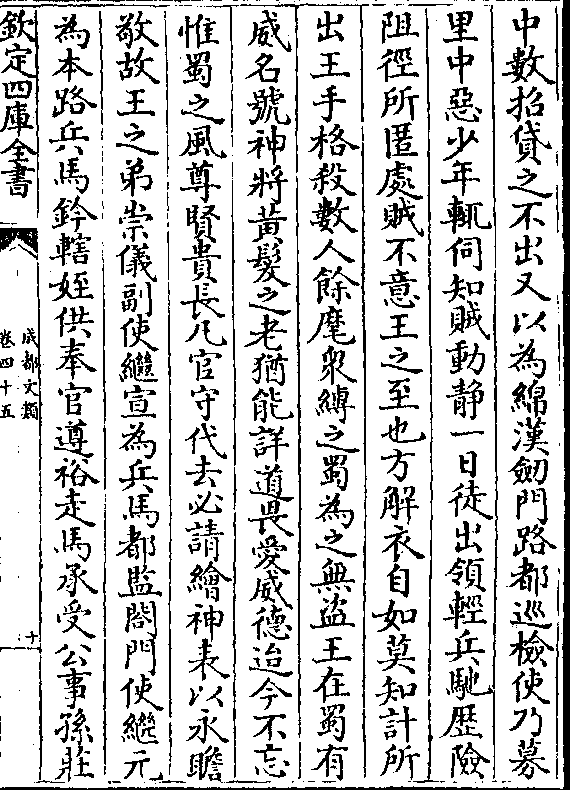 中數招貸之不出又以為綿漢劒門路都巡檢使乃募
里中惡少年輒伺知賊動静一日徒出領輕兵馳歴險
阻徑所匿處賊不意王之至也方解衣自如莫知計所
出王手格殺數人餘麾衆縛之蜀為之無盜王在蜀有
威名號神將黃髮之老猶能詳道畏愛威德迨今不忘
惟蜀之風尊賢貴長凡官守代去必請繪神表以永瞻
敬故王之弟崇儀副使繼宣為兵馬都監閤門使繼元
為本路兵馬鈐轄姪供奉官遵裕走馬承受公事孫莊
欽定四庫全書
成都文類
卷四十五
十